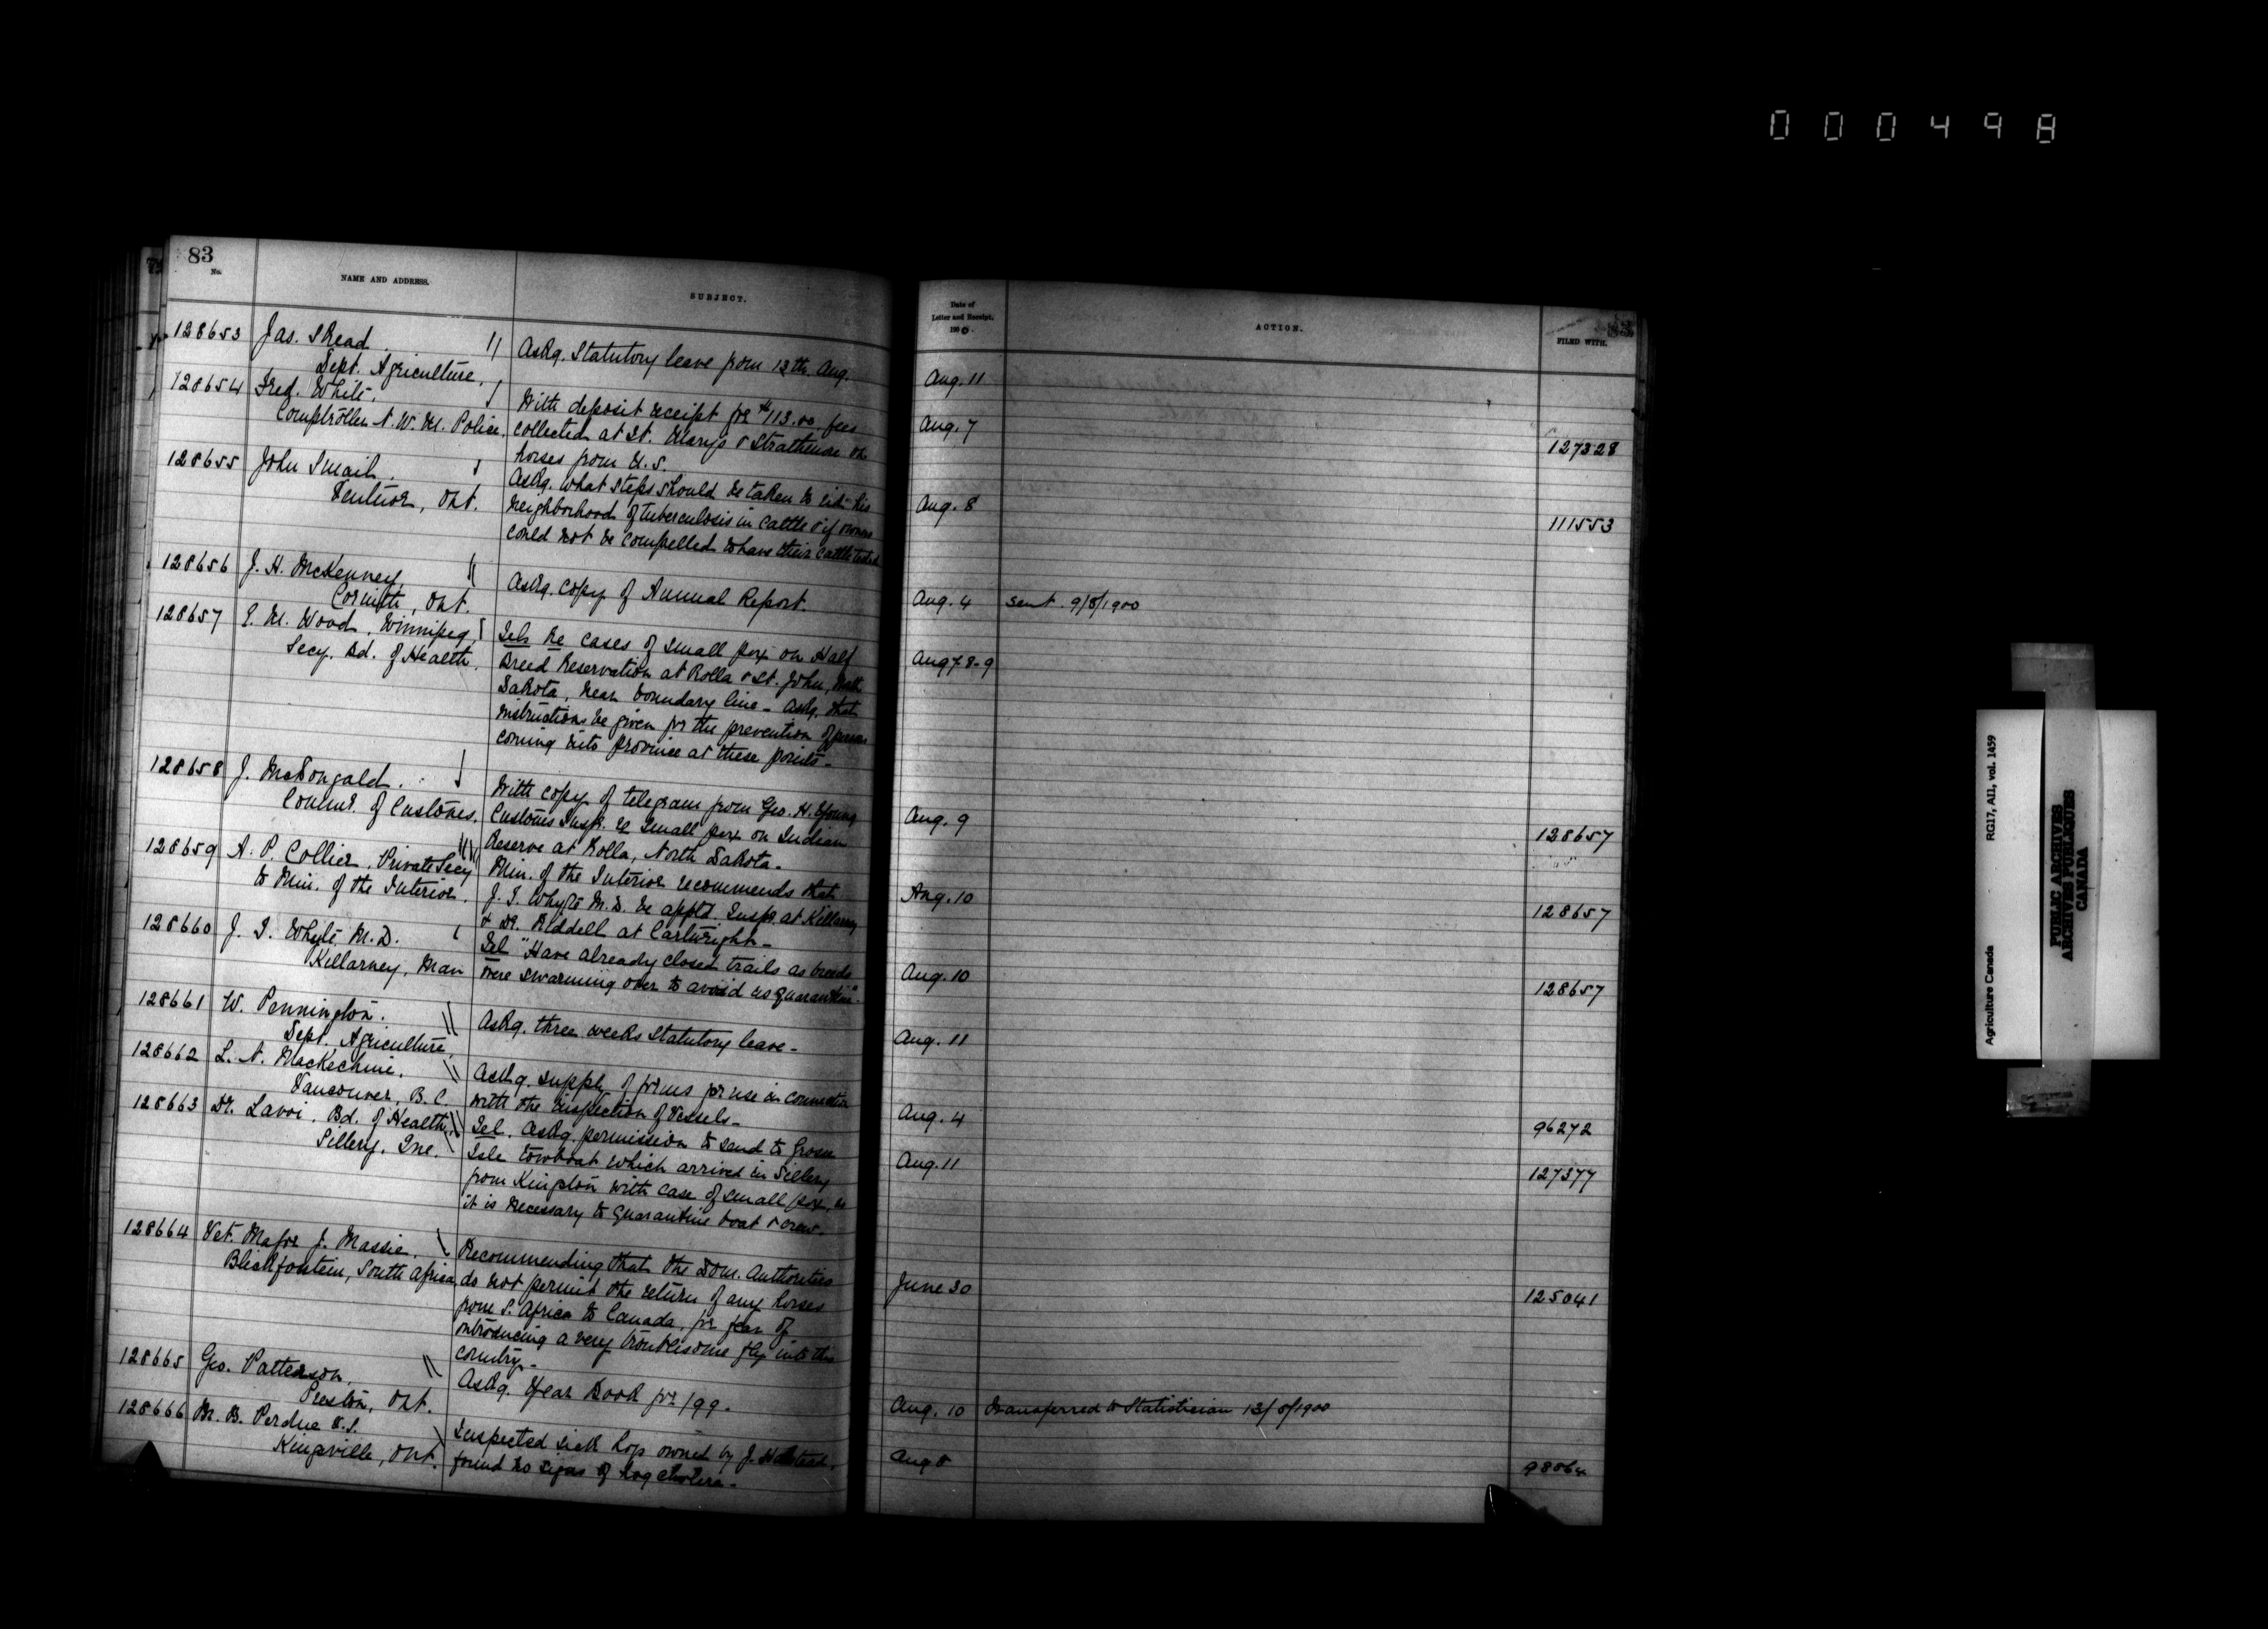 000498
83
No.
NAME AND ADDRESS.
SUBJECT.
128653 Jas. S Read.
Dept. Agriculture.
Askg. Statutory leave from 13th. Aug.
128654 Fred. White,
Comptroller N. W. M. Police.
With deposit receipt for $113.00. fees
collected at St. Marys & Strathmore on
horses from U.S.
128655 John Smail.
Ventnor, Ont.
Askg. what steps should be taken to rid his
neighborhood of tuberculosis in cattle & if owners
could not be compelled to have their cattle tested
128656 J. H. McKenney
Corinth, Ont.
Askg. copy of Annual Report.
128657 E. M. Wood, Winnipeg,
Secy. Bd. of Health.
Tel. Re cases of small pox on Half
Breed Reservation at Rolla & St. John, North
Dakota, near boundary line - askg. that
instructions be given for the prevention of persons
coming into province at these points -
128658 J. McDougald.
Commr. of Customs.
With copy of telegram from Geo. H. Young
Customs Insp. re small pox on Indian
Reserve at Rolla, North Dakota.
128659 A. P. Collier, Private Secy
to Min. of the Interior.
Min. of the Interior recommends that
J. T. Whyte M.D. be apptd. Inspr. at Killarney
& Dr. Riddell at Cartwright -
128660 J. T. Whyte, M.D.
Killarney, Man
Tel "Have already closed trails as breeds
were swarming over to avoid us quarantine".
128661 W. Pennington.
Dept. Agriculture.
Askg. three weeks Statutory leave -
128662 L. N. MacKechnie.
Vancouver, B. C.
Askg. supply of forms for use in connection
with the inspection of vessels -
128663 Dr. Lavoi, Bd. of Health,
Sillery, Que.
Tel. askg. permission to send to Grosse
Isle towboat which arrived in Sillery
from Kingston with case of small pox, as
it is necessary to quarantine boat & crew.
128664 Vet. Major J. Massie.
South Africa
Recommending that the Dom. Authorities
do not permit the return of any horses
from S. Africa to Canada, for fear of
introducing a very troublesome fly into this
country -
128665 Geo. Patterson,
Preston, Ont.
Askg. Year Book for 1899.
128666 M. B. Perdue V.S.
Kingsville, Ont.
Inspected sick hogs owned by J. Halstead,
found no signs of hog cholera -
Date of
Letter and Receipt.
1900.
ACTION.
FILED WITH.
Aug. 11
Aug. 7 127328
Aug. 8 111553
Aug. 4 Sent. 9/8/1900
Aug 7. 8-9
Aug. 9 128657
Aug. 10 128657
Aug. 10 128657
Aug. 11
Aug. 4 96272
Aug. 11 127377
June 30 125041
Aug. 10 transferred to Statistician 13/8/1900
Aug 8 98064
Agriculture Canada RG17, AI1, vol. 1459
PUBLIC ARCHIVES
ARCHIVES PUBLIQUES
CANADA